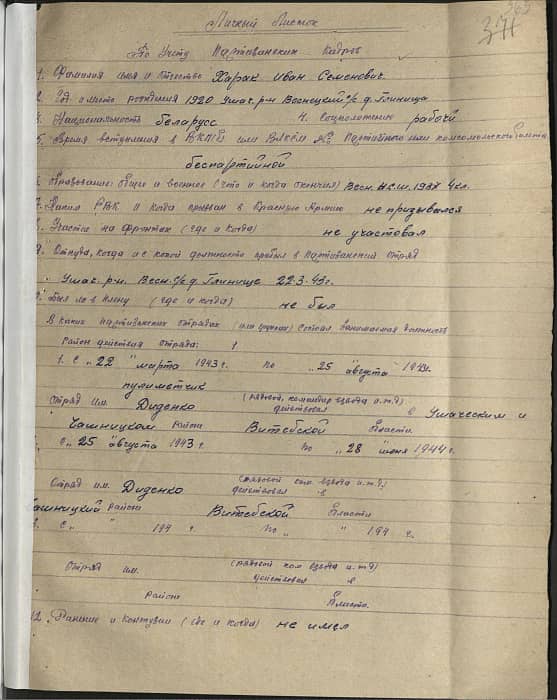 371
Личный Листок
По Учету Партизанских Кадров
1. Фамилия имя и отчество Харак Иван Семенович.
2. Год и место рождения 1920 Ушас. р-н Веснецкий с/с д. Глиница
3. Национальность беларусс 4. Соцположение рабочий
5. Время вступления в ВКП(б) или ВЛКСМ № Партийного или комсомольского билета
беспартийной
6. Образование: общее и военное (что и когда окончил) Весн. НСШ. 1937 4 кл.
7. Каким РВК и когда призван в Красную Армию не призывался
8. Участие на фронтах (где и когда) не участвовал
9. Откуда, когда и с какой должности прибыл в партизанский отряд
Ушас. р-н. Весн. с/с д. Глиница 22.3.43 г.
Был ли в плену (где и когда) не был
В каких партизанских отрядах (или группах) состоял занимаемая должность
Район действия отряда:
1. С „22" марта 1943 г. по „25" августа 1943 г.
пулиметчик
Отряд им. Диденко (рядовой, командир взвода и.т.д) действовал в Ушаческим и
Чашницком района Витебской области.
с „25" августа 1943 г. по „28" июня 1944 г.
Отряд им. Диденко (рядовой ком взвода и.т.д) действовал в
Чашницкий района Витебской области
3. с „ " 194 г. по „ " 194 г.
Отряд им. (рядовой ком взвода и.т.д) действовал в
района области.
12. Ранение и контузии (где и когда) не имел